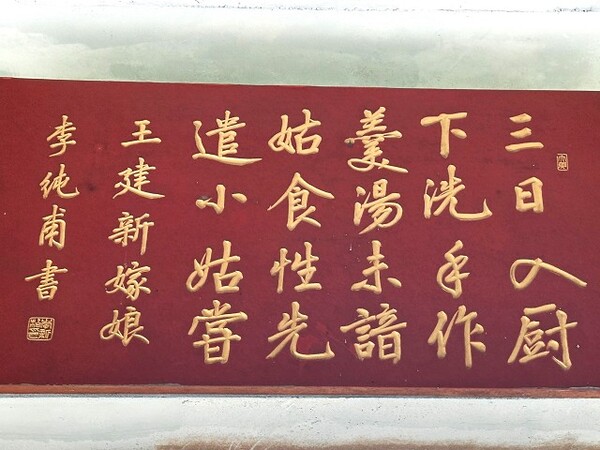 三日入厨
下洗手作
羹湯未諳
姑食性先
遣小姑嘗
王建新嫁娘
李纯甫書